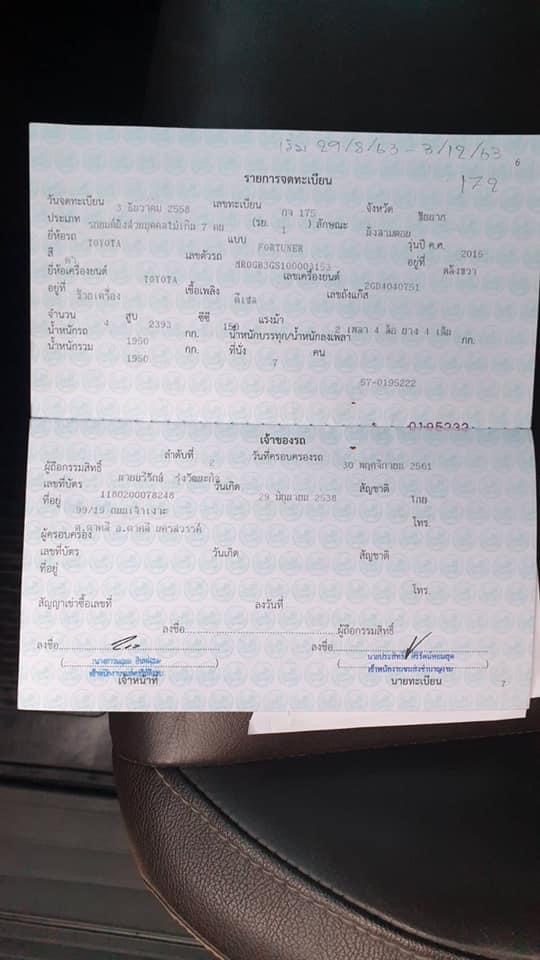 เริ่ม 29/8/63 - 3/12/63
6
รายการจดทะเบียน
172
วันจดทะเบียน 3 ธันวาคม 2558 เลขทะเบียน กจ 175 จังหวัด ชัยนาท
ประเภท รถยนต์นั่งส่วนบุคคลไม่เกิน 7 คน (รย. 1 ) ลักษณะ นั่งสามตอน
ยี่ห้อรถ TOYOTA แบบ FORTUNER รุ่นปี ค.ศ. 2015
สี ดำ เลขตัวรถ MR0GB3GS100003153 อยู่ที่ คัสซีขวา
ยี่ห้อเครื่องยนต์ TOYOTA เลขเครื่องยนต์ 2GD4040751
อยู่ที่ ริมเครื่อง เชื้อเพลิง ดีเซล เลขถังแก๊ส
จำนวน 4 สูบ 2393 ซีซี 150 แรงม้า 2 เพลา 4 ล้อ ยาง 4 เส้น
น้ำหนักรถ 1950 กก. น้ำหนักบรรทุก/น้ำหนักลงเพลา กก.
น้ำหนักรวม 1950 กก. ที่นั่ง 7 คน
57-0195222
เจ้าของรถ
ลำดับที่ 2 วันที่ครอบครองรถ 30 พฤศจิกายน 2561
ผู้ถือกรรมสิทธิ์
เลขที่บัตร 1180200078248 วันเกิด 29 มิถุนายน 2538 สัญชาติ ไทย
ที่อยู่ 99/19 ถนนเจ้าเงาะ
ต.ตาคลี อ.ตาคลี นครสวรรค์ โทร.
ผู้ครอบครอง
เลขที่บัตร วันเกิด สัญชาติ
ที่อยู่
โทร.
สัญญาเช่าซื้อเลขที่ ลงวันที่
ลงชื่อ ผู้ถือกรรมสิทธิ์
ลงชื่อ ลงชื่อ
เจ้าหน้าที่ นายทะเบียน
7